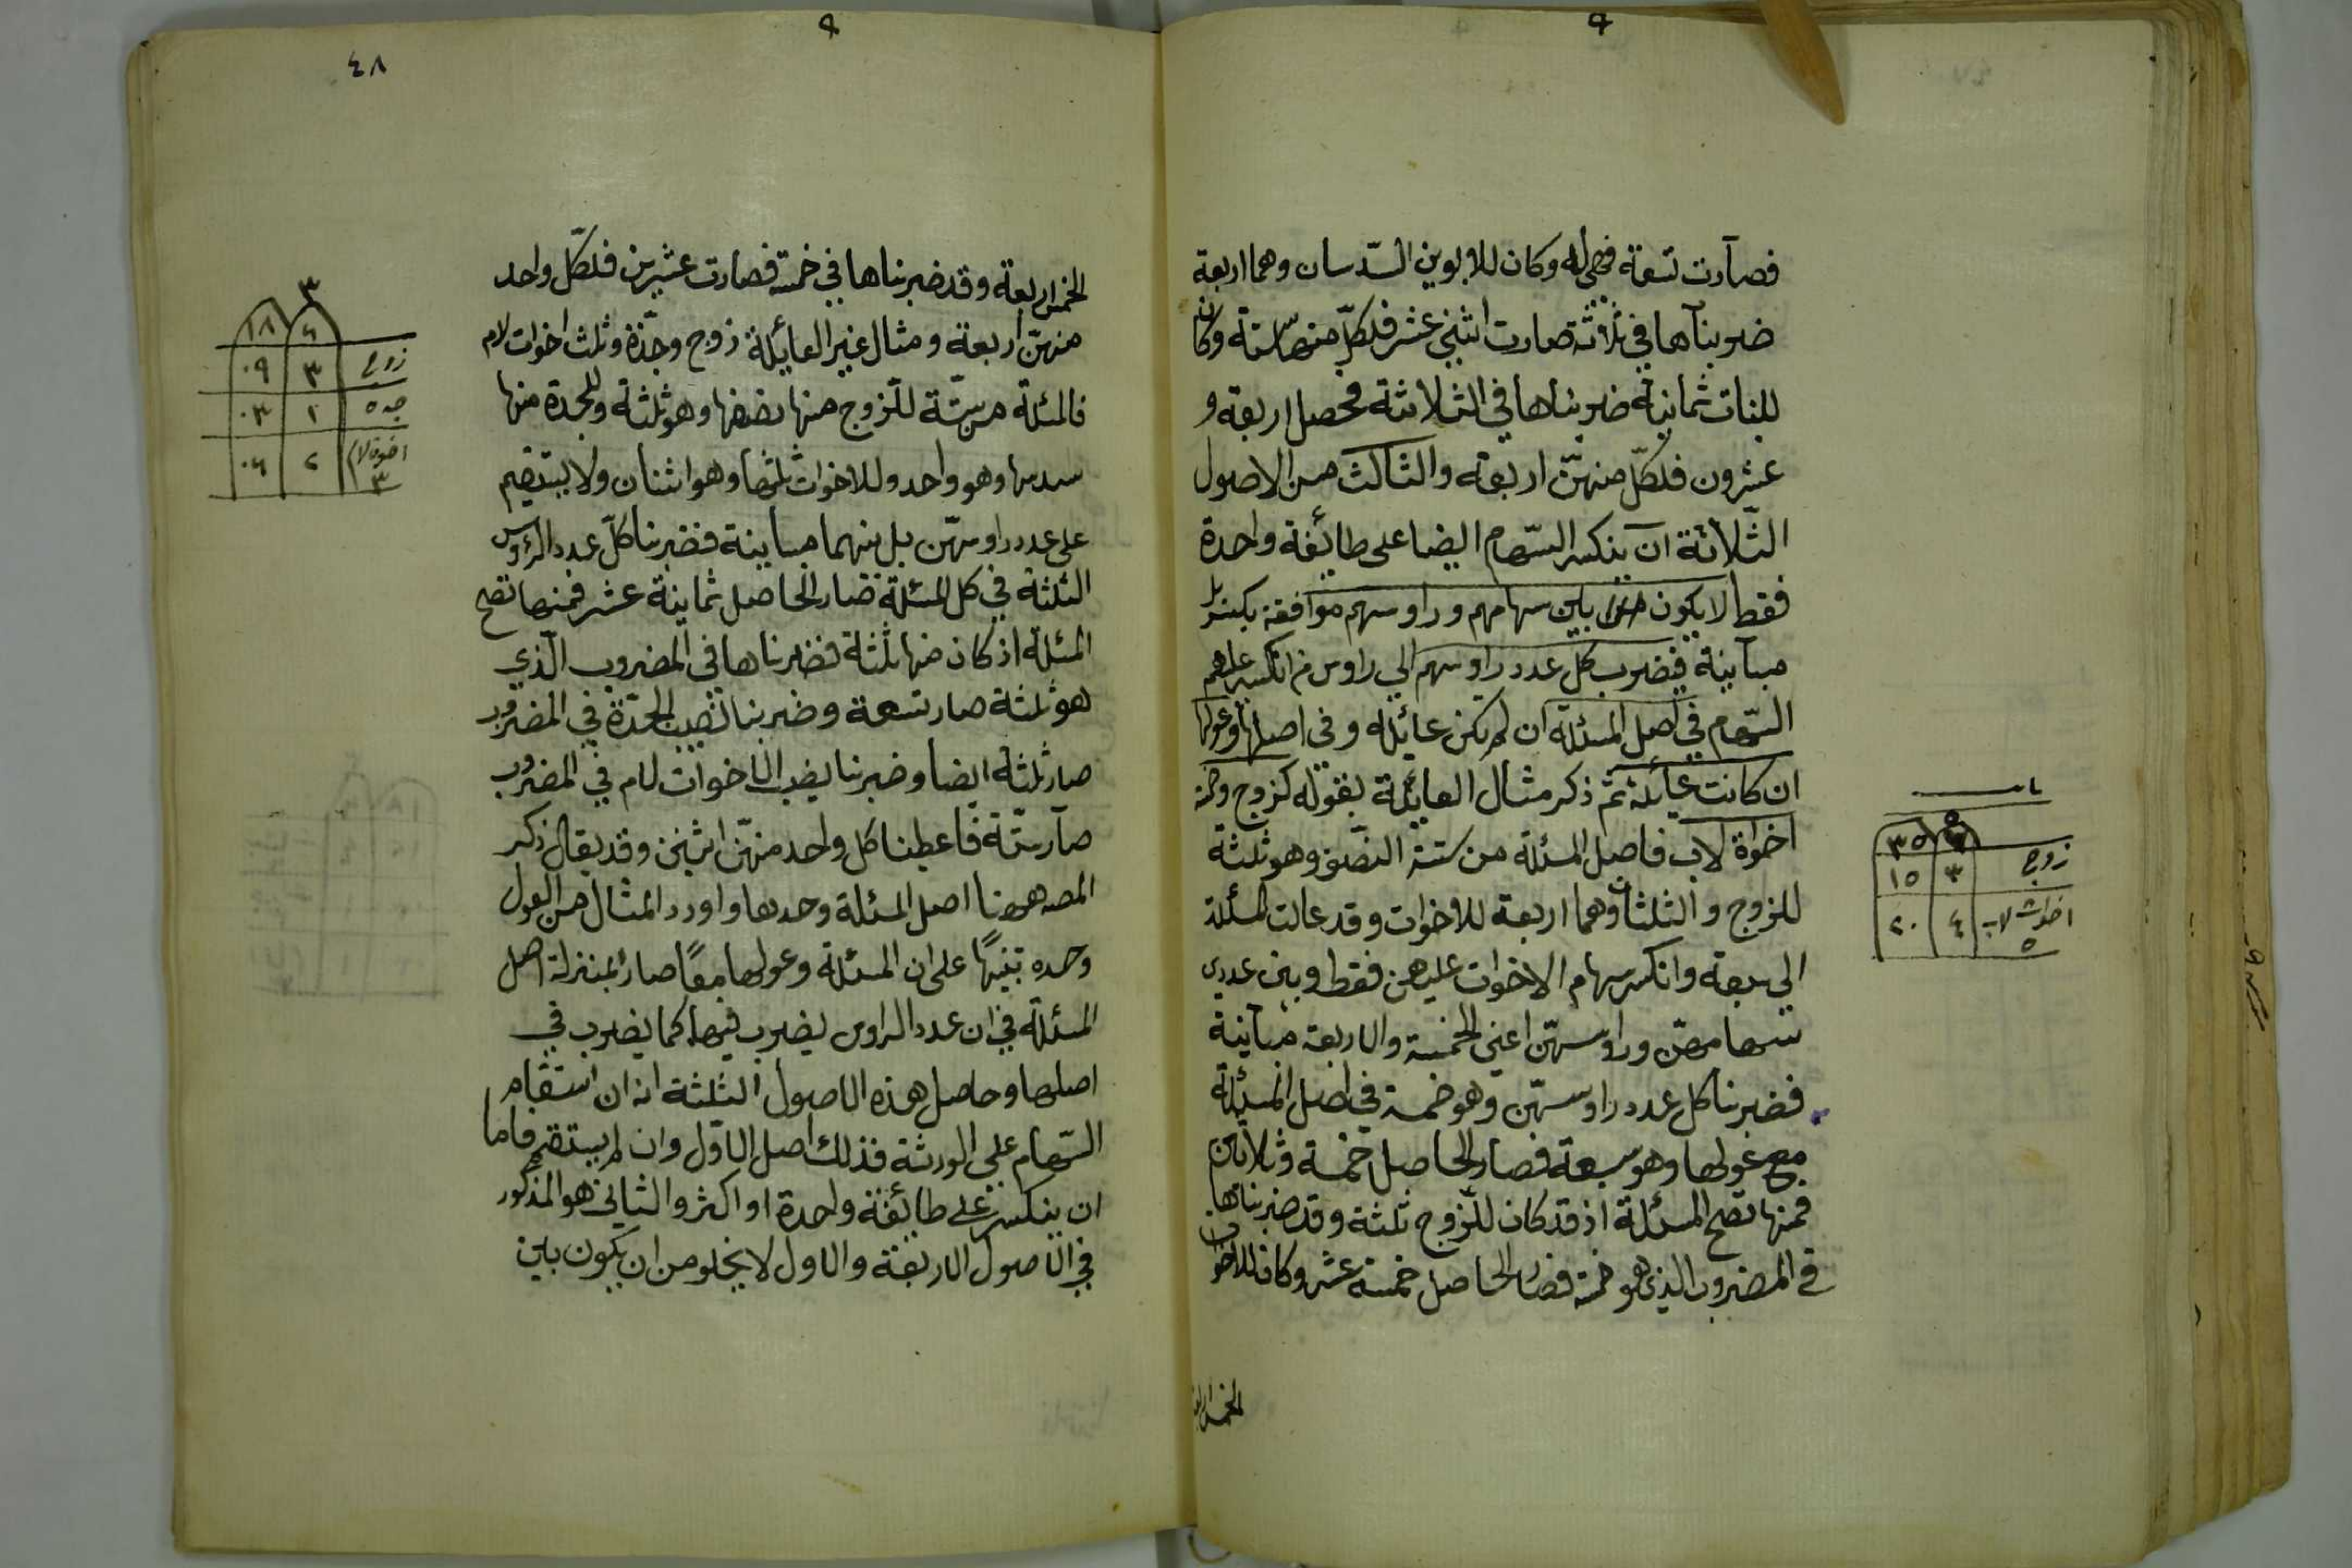 فصارت تسعة فهي له وكان للابوين السدسان وهما اربعة
ضربناها في ثلاثة صارت اثنى عشر فلكل منهما ستة وكان
للبنات ثمانية ضربناها في الثلاثة فحصل اربعة و
عشرون فلكل منهن اربعة والثالث من الاصول
الثلاثة ان ينكسر السهام ايضا على طائفة واحدة
فقط لا يكون بين سهامهم وراوسهم موافقة بل
مباينة فيضرب كل عدد راوسهم اي راوس من انكسر عليهم
السهام في اصل المسئلة ان لم تكن عائلة وفي اصلها وعولها
ان كانت عائلة ثم ذكر مثال العائلة بقوله كزوج وخمس
اخواة لاب فاصل المسئلة من ستة النصف وهو ثلثة
للزوج والثلثان وهما اربعة للاخوات وقد عالت المسئلة
الى سبعة وانكسر سهام الاخوات عليهن فقط وبين عددى
سهامهن وراوسهن اعني الخمسة والاربعة مباينة
فضربنا كل عدد راوسهن وهو خمسة في اصل المسئلة
مع عولها وهو سبعة فصار الحاصل خمسة وثلاثين
فمنها تصح المسئلة اذ قد كان للزوج ثلثة وقد ضربناها
في المضروب الذي هو خمسة فصار الحاصل خمسة عشر وكان للاخوات
الخمس اربعة
٥
٣٥
زوج ٣ ١٥
اخوات لاب ٥ ٤ ٢٠
٤٨
الخمس اربعة وقد ضربناها في خمسة فصارت عشرين فلكل واحد
منهن اربعة ومثال غير العائلة زوج وجدة وثلث اخوات لام
فالمسئلة من ستة للزوج منها نصفها وهو ثلثة وللجدة منها
سدسها وهو واحد وللاخوات ثلثها وهو اثنان ولا يستقيم
على عدد راوسهن بل بينهما مباينة فضربنا كل عدد الرؤس
الثلثة في كل المسئلة فصار الحاصل ثمانية عشر فمنها تصح
المسئلة اذ كان منها ثلثة فضربناها في المضروب الذي
هو ثلثة صار تسعة وضربنا نصيب الجدة في المضروب
صار ثلثة ايضا وضربنا نصيب الاخوات لام في المضروب
صار ستة فاعطينا كل واحد منهن اثنين وقد يقال ذكر
المصه ههنا اصل المسئلة وحدها واورد المثال من العول
وحده تنبيها على ان المسئلة وعولها معا صار بمنزلة اصل
المسئلة في ان عدد الراوس يضرب فيها كما يضرب في
اصلها وحاصل هذه الاصول الثلثة انه ان استقام
السهام على الورثة فذلك اصل الاول وان لم يستقم فاما
ان ينكسر على طائفة واحدة او اكثر والثاني هو المذكور
في الاصول الاربعة والاول لا يخلو من ان يكون بين
٣
٦ ١٨
زوج ٣ ٠٩
جده ١ ٠٣
اخوة لام ٣ ٢ ٠٦